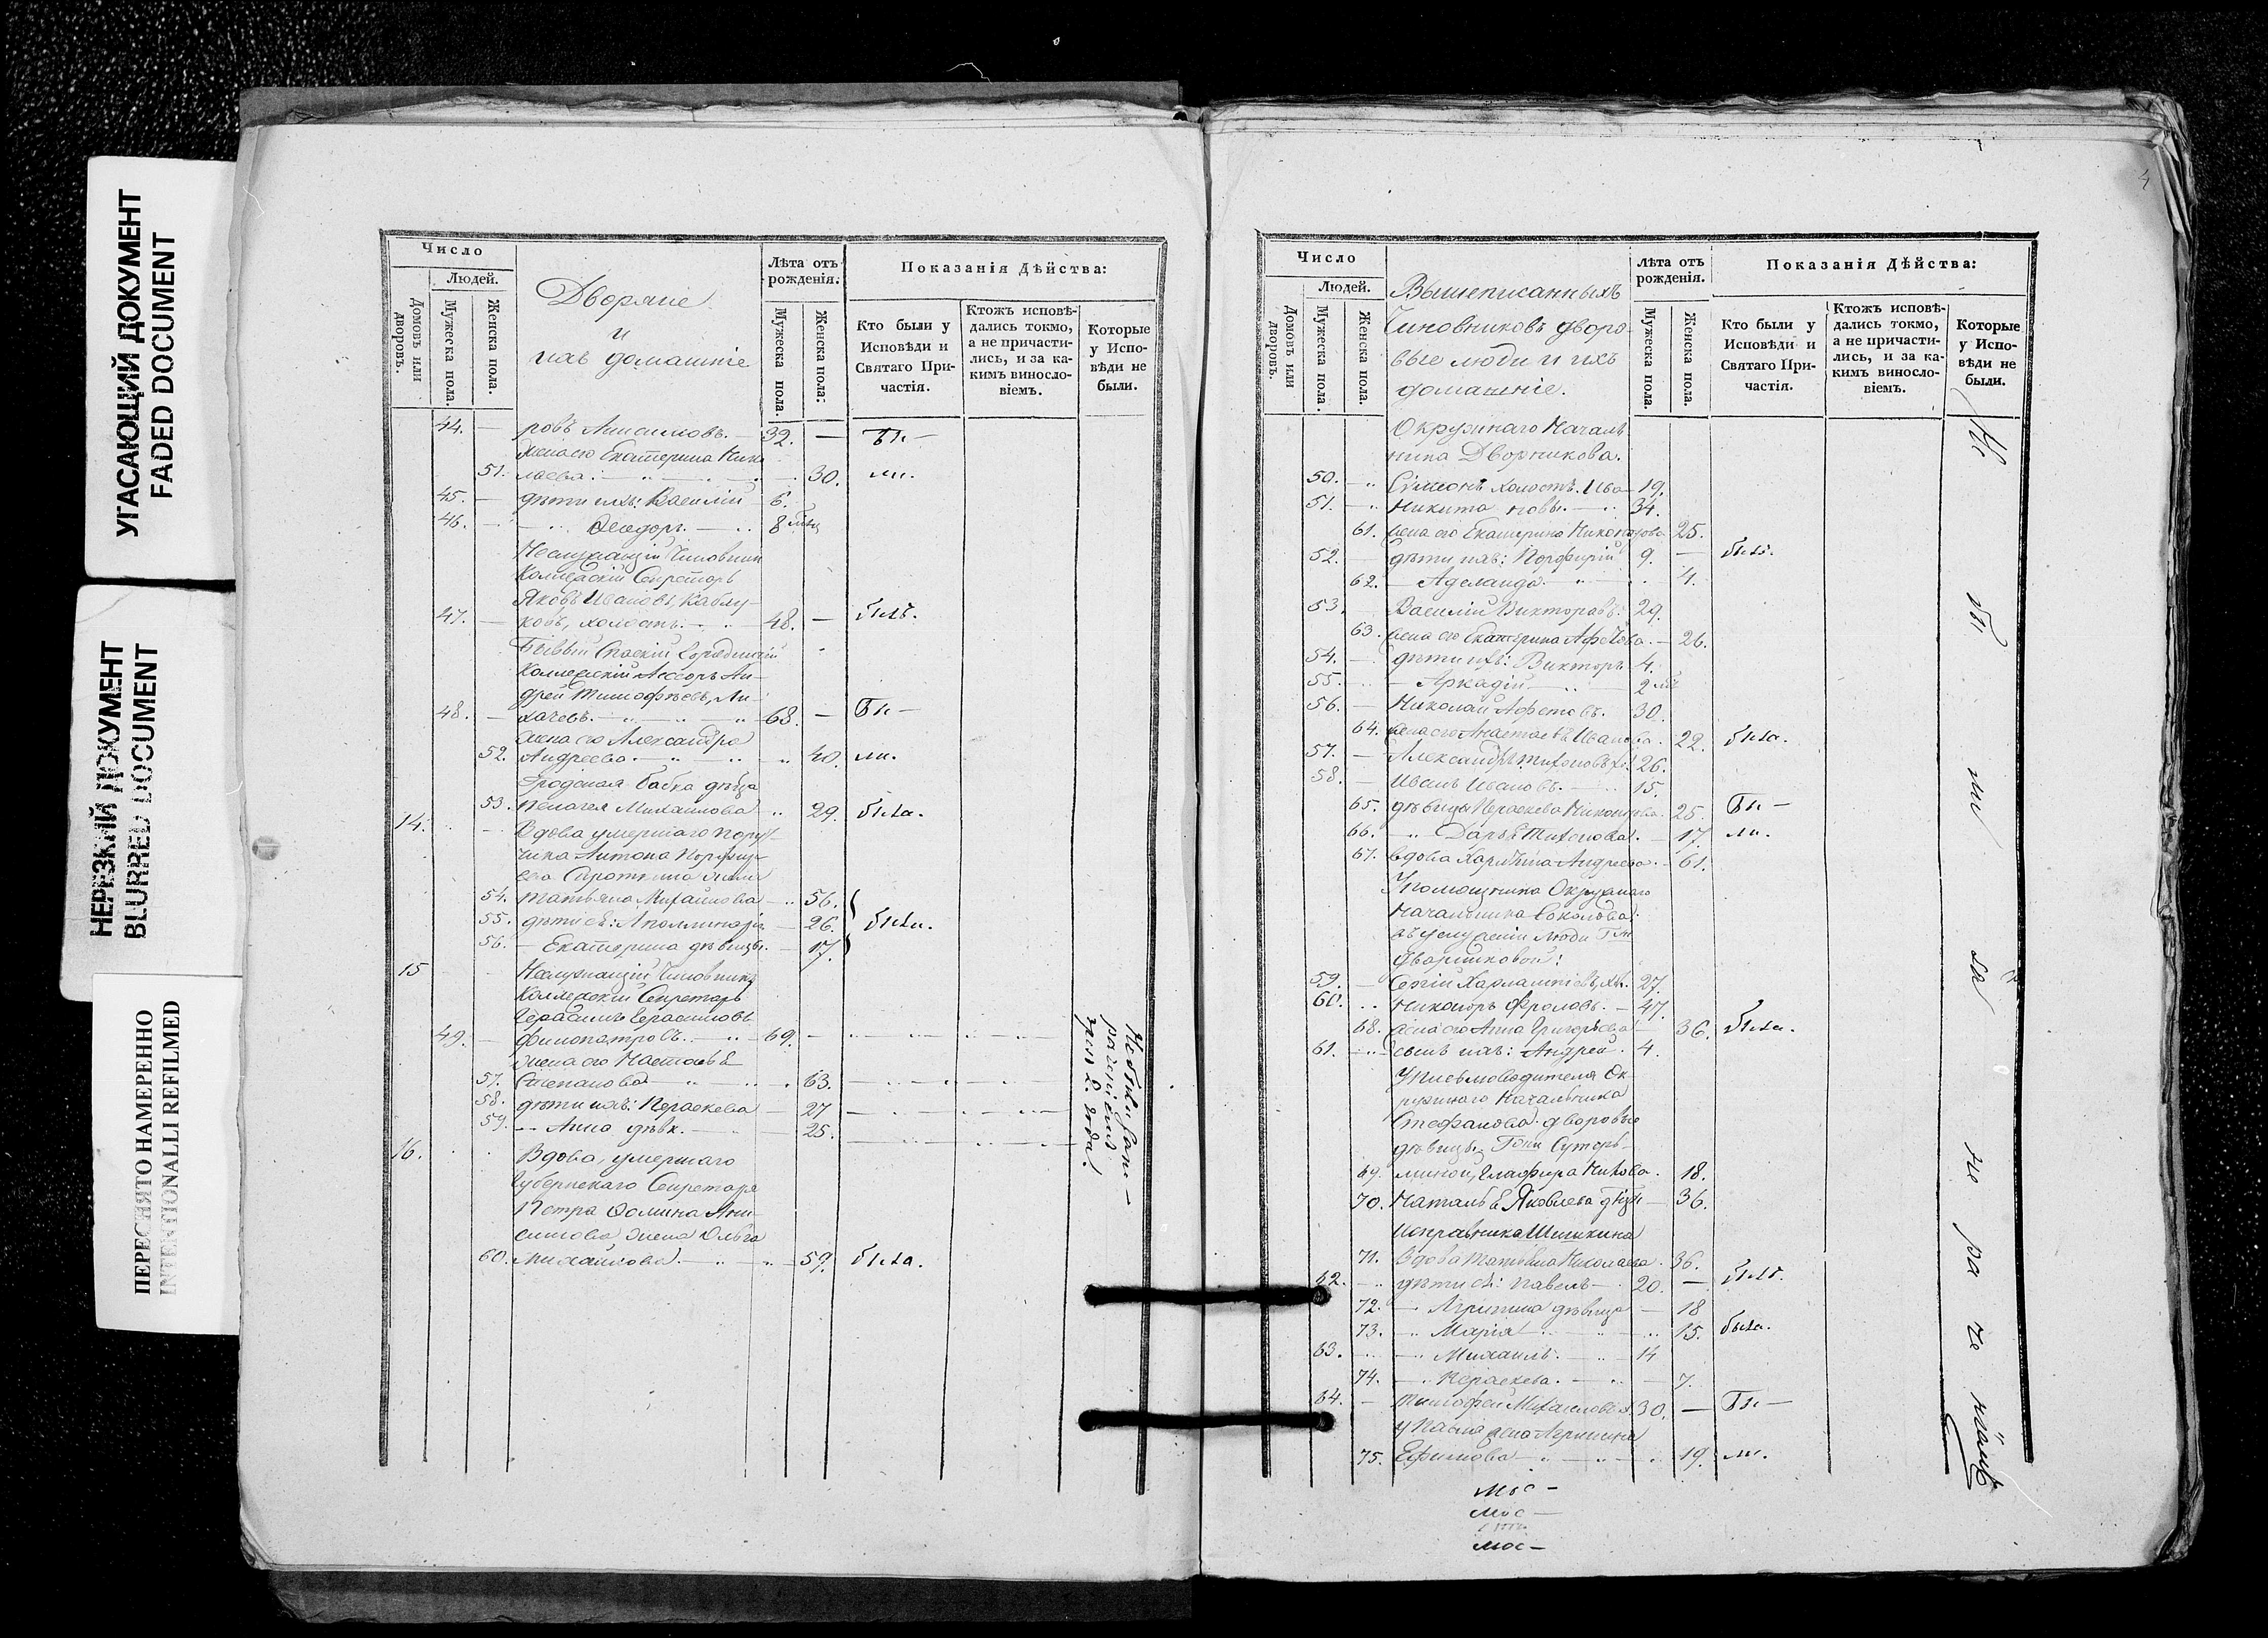 УГАСАЮЩИЙ ДОКУМЕНТ
FADED DOCUMENT
НЕРЕЗКИЙ ДОКУМЕНТ
BLURRED DOCUMENT
ПЕРЕСНЯТО НАМЕРЕННО
INTENTIONALLI REFILMED
Число
Людей.
Домовъ или дворовъ.
Мужеска пола.
Женска пола.
Дворяне
и
ихъ домашніе
Лѣта отъ рожденія.
Мужеска пола.
Женска пола:
Показанія Дѣйства:
Кто были у Исповѣди и Святаго Причастія.
Ктожъ исповѣдались токмо, а не причастились, и за какимъ винословіемъ.
Которые у Исповѣди не были.
44. — ровъ Анисимовъ. — 32. — Бы —
жена его Екатерина Нико
51. лаева. 30. ли.
45. — дѣти ихъ: Василій 6.
46. — Ѳеодоръ. 8
Неслужащій Чиновникъ
Коллежскій Секретарь
Яковъ Ивановъ, Каблу-
47. — ковъ, холостъ. 48. — былъ.
Бывшій Спаскій Городничій
Коллежскій Ассесоръ Ан-
дрей Тимофѣевъ, Ли-
48. — хачевъ. 68. — Бы —
жена его Александра
52. Андреева. 40. ли.
Градская бабка дѣвица
53. Пелагея Михайлова 29. была.
14. Вдова умершаго Пору-
чика Антона Порфирь-
ева Сироткина жена
54. Татьяна Михайлова 56.
55. дѣти ея: Апполинарія 26. были.
56. — Екатерина дѣвицы. — 17.
15 Неслужащій Чиновникъ
Коллежскій Секретарь
Герасимъ Герасимовъ
49. — Филопатровъ. 69. —
жена его Настасья
57. Степанова 63.
58. дѣти ихъ: Параскева — 27
59. — Анна дѣвк. 25.
Не были за не-
16. Вдова, умершаго
Губернскаго Секретаря
Петра Ѳомина Ани-
симова жена Ольга
60. Михайлова. 59. была.
4
Число
Людей.
Домовъ или дворовъ.
Мужеска пола.
Женска пола.
Вышеписанныхъ
Чиновниковъ дворо-
вые люди и ихъ
домашніе.
Лѣта отъ рожденія.
Мужеска пола.
Женска пола.
Показанія Дѣйства:
Кто были у Исповѣди и Святаго Причастія.
Ктожъ исповѣдались токмо, а не причастились, и за какимъ винословіемъ.
Которые у Исповѣди не были.
Окружнаго Началь
ника Дворникова.
50. Сѵмеонъ холостъ. Ива 19.
51. Никита новы. 34.
61. жена его Екатерина Никонорова 25.
52. — дѣти ихъ: Порфирій 9. — были.
62. — Аделаида 4.
53. — Василій Викторовъ. 29.
63. жена его Екатерина — 26.
54. — дѣти ихъ: Викторъ 4.
55. — Аркадій 2
56. — Николай 30.
64. жена его Анастасья Иванова. 22. были.
57. — Александръ Тихоновъ 26.
58. — Иванъ Ивановъ. 15.
65. дѣвицы Параскева 25. Бы —
66. Дарья Тихонова. — 17. ли.
67. вдова Андреева. — 61.
У помощника Окружнаго
Начальника Соколова
въ услуженіи люди
Дворниковой:
59. — Сергій Харлампіевъ, 27.
60. Никоноръ Фроловъ. — 47.
68. жена его Анна Григорьева 36. были.
61. сынъ ихъ: Андрей. 4.
У Письмоводителя Ок-
ружнаго Начальника
Стефанова дворовые
дѣвицы, Гжи Сутор-
69. миной, Глафира 18.
70. Наталья Яковлева 36.
Исправника Шишкина
71. Вдова Татьяна Николаева. 36.
62. дѣти ея: Павелъ 20. — былъ.
72. — дѣвица — 18
73. Марія 15. была.
63. Михаилъ. 14
74. Параскева. 7.
64. — Тимофей Михайловъ 30. — Бы —
У Павла жена
75. Ефимова 19. ли.
мос —
мос —
мос —